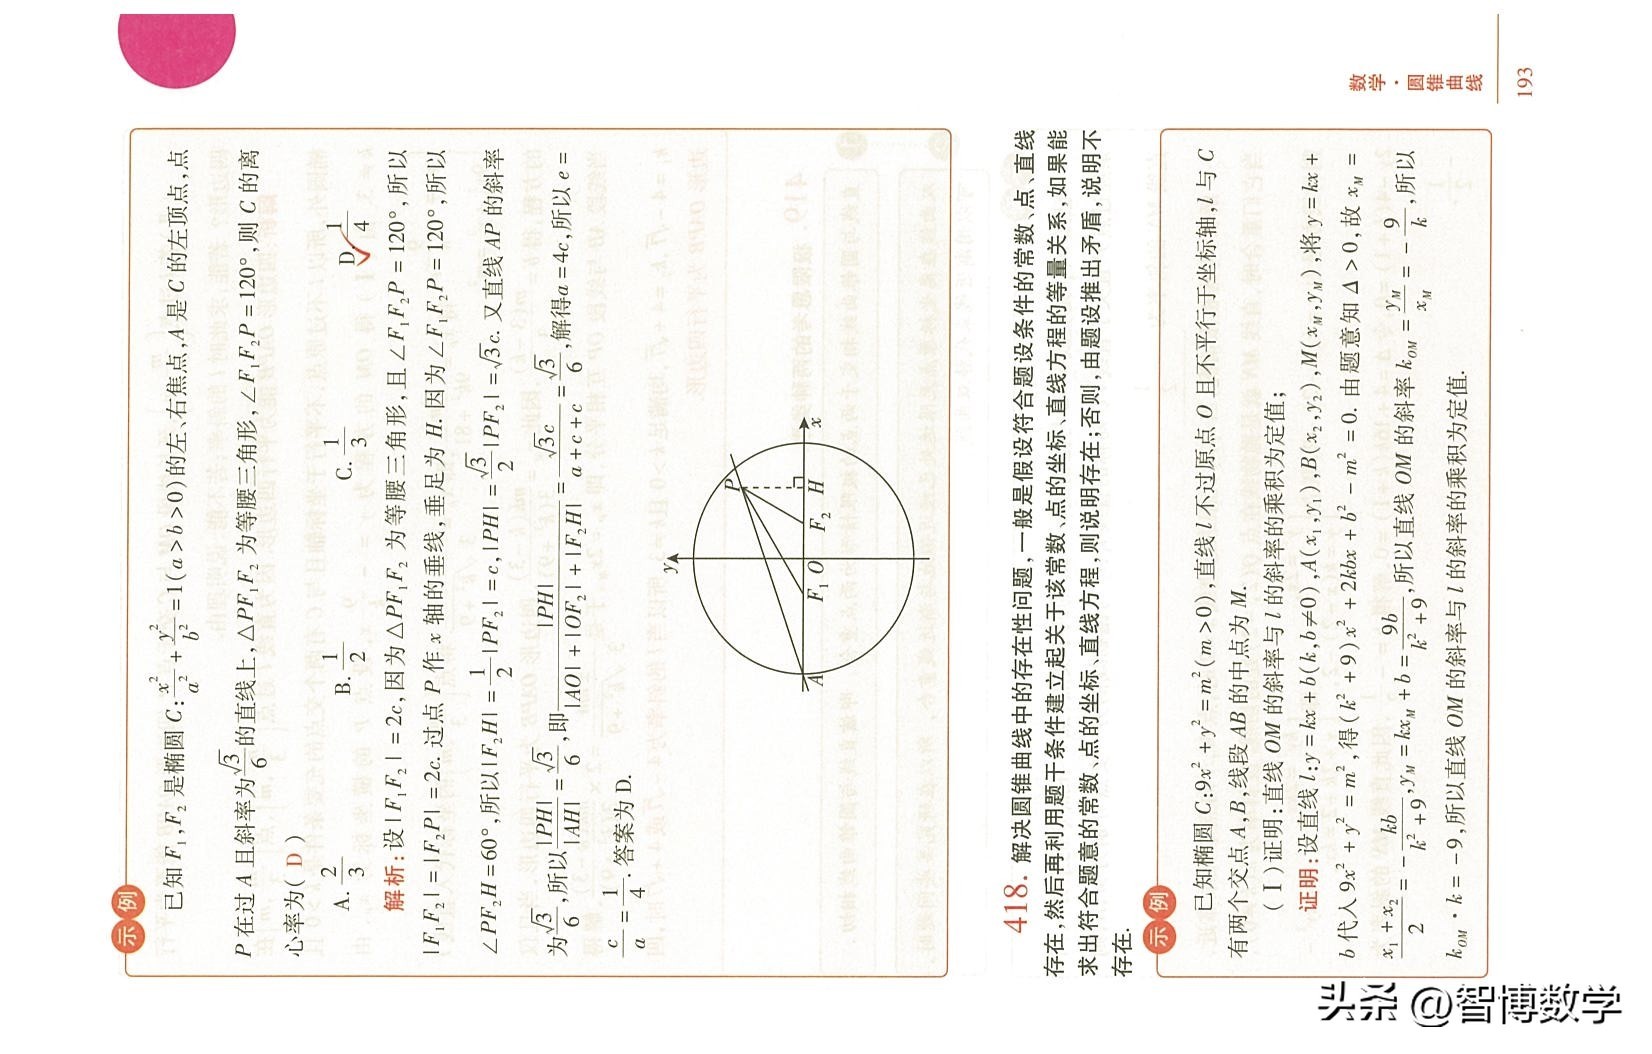 示例
已知 F₁,F₂ 是椭圆 C:x²/a²+y²/b²=1(a>b>0)的左、右焦点,A 是 C 的左顶点,点
P 在过 A 且斜率为√3/6的直线上,△PF₁F₂ 为等腰三角形,∠F₁F₂P=120°,则 C 的离
心率为( D )
A. 2/3 B. 1/2 C. 1/3 D. 1/4
解析:设|F₁F₂|=2c,因为△PF₁F₂ 为等腰三角形,且∠F₁F₂P=120°,所以
|F₁F₂|=|F₂P|=2c. 过点 P 作 x 轴的垂线,垂足为 H. 因为∠F₁F₂P=120°,所以
∠PF₂H=60°,所以|F₂H|=1/2|PF₂|=c,|PH|=√3/2|PF₂|=√3c. 又直线 AP 的斜率
为√3/6,所以|PH|/|AH|=√3/6,即|PH|/(|AO|+|OF₂|+|F₂H|)=√3c/(a+c+c)=√3/6,解得a=4c,所以 e=
c/a=1/4. 答案为 D.
y
P
A F₁ O F₂ H x
418. 解决圆锥曲线中的存在性问题,一般是假设符合题设条件的常数、点、直线
存在,然后再利用题干条件建立起关于该常数、点的坐标、直线方程的等量关系,如果能
求出符合题意的常数、点的坐标、直线方程,则说明存在;否则,由题设推出矛盾,说明不
存在.
示例
已知椭圆 C:9x²+y²=m²(m>0),直线 l 不过原点 O 且不平行于坐标轴,l 与 C
有两个交点 A,B,线段 AB 的中点为 M.
(Ⅰ)证明:直线 OM 的斜率与 l 的斜率的乘积为定值;
证明:设直线 l:y=kx+b(k,b≠0),A(x₁,y₁),B(x₂,y₂),M(x_M,y_M),将 y=kx+
b 代入 9x²+y²=m²,得(k²+9)x²+2kbx+b²-m²=0. 由题意知 Δ>0,故 x_M=
(x₁+x₂)/2=-kb/(k²+9),y_M=kx_M+b=9b/(k²+9),所以直线 OM 的斜率 k_OM=y_M/x_M=-9/k,所以
k_OM·k=-9,所以直线 OM 的斜率与 l 的斜率的乘积为定值.
数学·圆锥曲线
193
头条 @智博数学